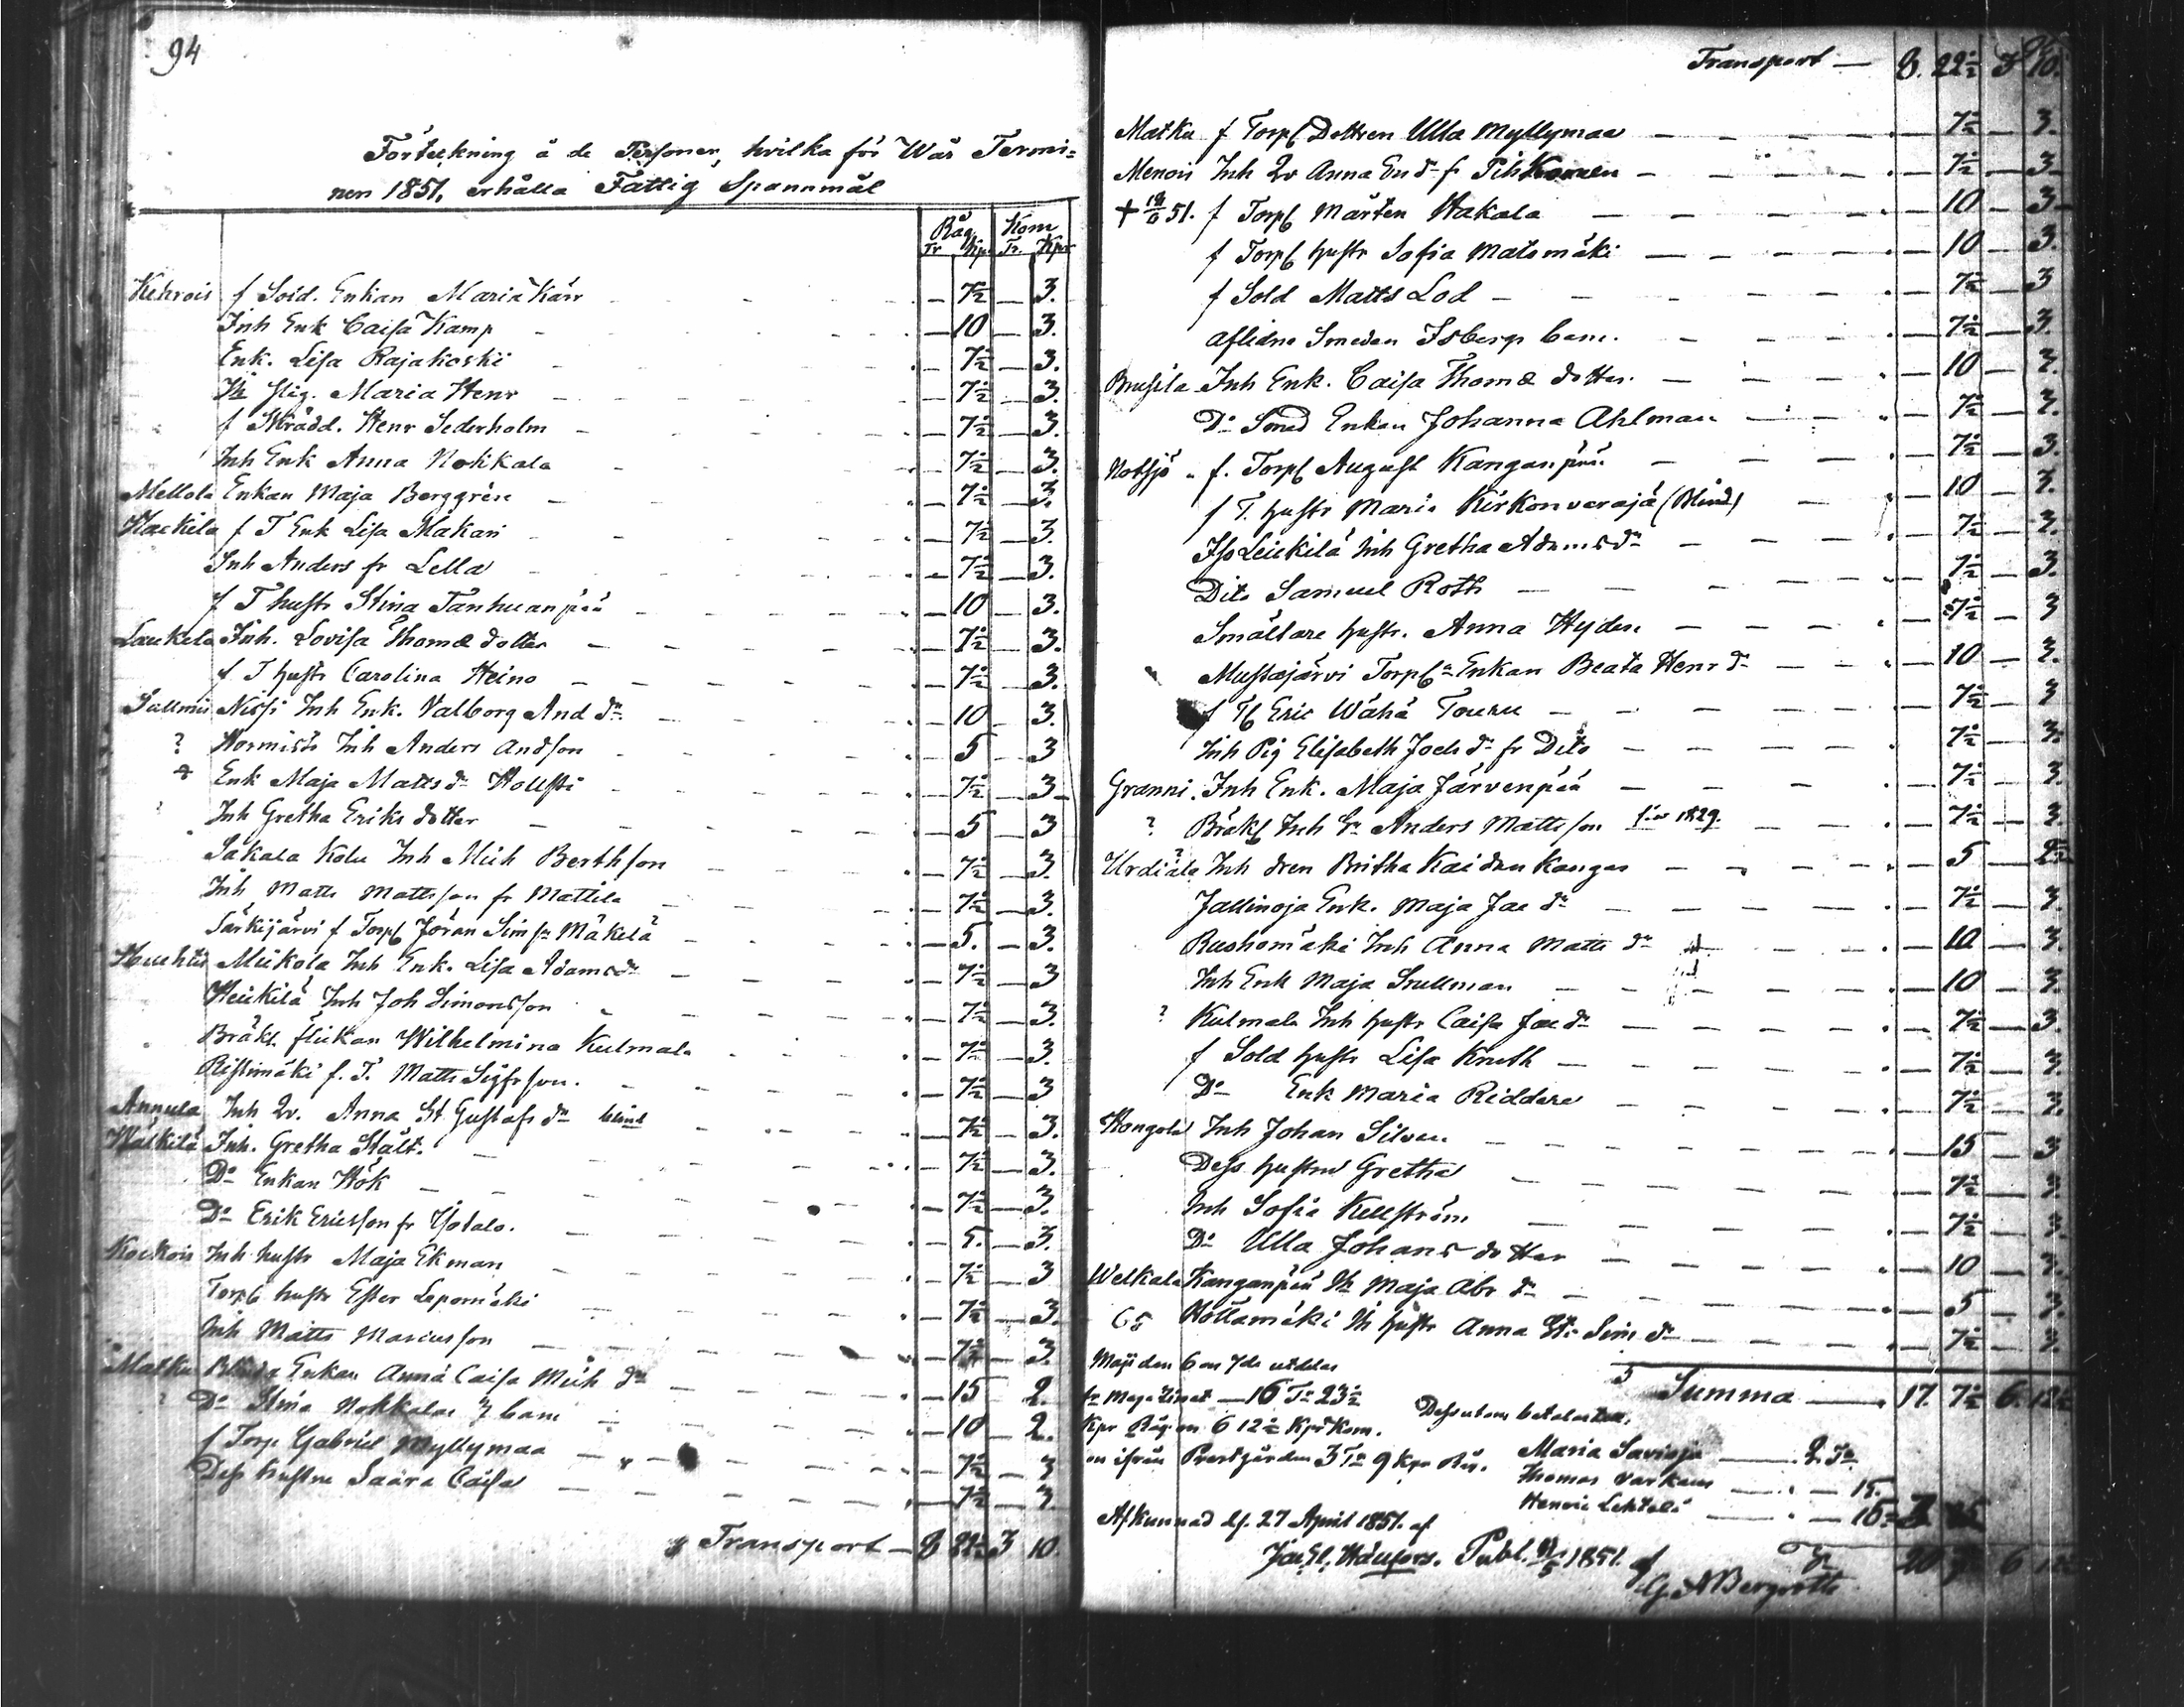 94
Förteckning å de Personer, hvilka för Wår Termi=
nen 1851. erhålla Fattig Spannmål
Råg Korn
Tr Kpr Tr. Kpr
Kehrois f Sold. Enkan Maria Kärr — 7½ — 3.
Inh Enk Caisa Kamp — 10 — 3.
Enk. Lisa Rajakoski — 7½ — 3.
Maria Henr — 7½ — 3.
f Skrädd. Henr Sederholm — 7½ — 3.
Inh Enk Anna Nokkala — 7½ — 3.
Mellola Enkan Maja Berggrén — 7½ — 3.
Kackila f T Enk Lisa Makari — 7½ — 3.
Inh Anders fr Lella — 7½ — 3.
f T hustr Stina Tanhuanpää — 10 — 3.
Laukela Inh. Lovisa Thomæ dotter — 7½ — 3.
f T hustr Carolina Heino — 7½ — 3.
Nissi Inh Enk. Valborg And dr — 10 — 3.
? Kormisto Inh Anders Andson — 5 — 3
Enk Maja Matts dr Hollsti — 7½ — 3
Inh Gretha Eriks dotter — 5 — 3
Sakala Kolu Inh Mich Berthson — 7½ — 3
Inh Matts Mattsson fr Mattila — 7½ — 3.
Särkijärvi f Torp Jöran Sim sn Mäkelä — 5. — 3.
Huhtis Mickola Inh Enk. Lisa Adams dr — 7½ — 3
Heickilä Inh Joh Simonsson — 7½ — 3.
Bräkl. flickan Wilhelmina Kulmala — 7½ — 3.
Ristimäki f. T. Matts Sigfrson. — 7½ — 3
Annula Inh Qv. Anna St. Gustafs dr blind — 7½ — 3.
Wäckilä Inh. Gretha Stålt. — 7½ — 3.
Do Enkan Hök — 7½ — 3.
Do Erik Ericsson fr — 5. — 3.
Kockois Inh hustr Maja Ekman — 7½ — 3
Torp hustr Ester Lepomäki — 7½ — 3.
Inh Matts Mariusson — 7½ — 3.
Matku Enkan Anna Caisa Mich dr — 15 2.
? Do Stina Nokkalas 3 barn — 10 2.
f Torp. Gabriel Myllymaa — 7½ — 3
Dess hustru Saara Caisa — 7½ 3
Transport — 8 22½ 3 10.
Transport — 8. 22½ 3 10.
Matku f Torp Dottren Ulla Myllymaa — 7½ — 3.
Menois Inh Qv Anna End dr fr — 7½ — 3
† 51. f Torp Mårten Hakala — 10 — 3
f Torp hustr Sofia Matomäki — 10 — 3.
f Sold Matts Lod — 7½ — 3
aflidne Smeden Isbergs barn. — 7½ — 3.
Brusila Inh Enk. Caisa Thomæ dotter. — 10 — 3.
Do Smed Enkan Johanna Ahlman — 7½ — 3.
Notsjö f. Torp August Kanganpää — 7½ — 3.
f T. hustr Maria Kirkonveräjä (Blind) — 10 — 3.
Inh Gretha Adams dr — 7½ — 3.
Dito Samuel Roth — 7½ — 3.
Smältare hustr. Anna Hyden — 7½ — 3
Mussajärvi Torp Enkan Beata Henr dr — 10 — 3.
f T Eric Wähä Touru — 7½ — 3
Inh Pig Elisabeth Joch dr fr Dito — 7½ — 3.
Granni. Inh Enk. Maja Järvenpää — 7½ — 3.
? Bräkl Inh Anders Mattsson 1829. — 7½ — 3.
Urdiala Inh dren Britha Kaidan Kangas — 5 — 2½
Jallinoja Enk. Maja Jac dr — 7½ — 3.
Ruohomäki Inh Anna Matts dr — 10 — 3.
Inh Enk Maja Snellman — 10 — 3.
? Kulmala Inh hustr Caisa Jac dr — 7½ — 3.
f Sold hustr Lisa Knuth — 7½ — 3.
Do Enk Maria Riddare — 7½ — 3.
Hongola Inh Johan Silvan — 15 — 3
Dess hustru Gretha — 7½ — 3
Inh Sofia Kellström — 7½ — 3.
Do Ulla Johans dotter — 10 — 3.
Welkala Kanganpää Maja Abr dr — 5 — 3.
65 Hollamäki hustr Anna St. Sim dr — 7½ — 3
Maji den 6 en 7de utdelas
fr Magazinet — 16 Tr 23½
Kpr Råg en 6 12½ Kpr Korn.
en ifrån Prestgården 3 Tr 9 Kpr Råg.
Summa — 17. 7½ 6. 12½
Dessutom betalas
Maria Savioja — 2. Tr
Thomas Varkaus — 15.
Henric Lehtelä — 15
Afkunnad d. 27 April 1851. af
Publ. 1851. af
G A Bergroth
20 7½ 6 12½